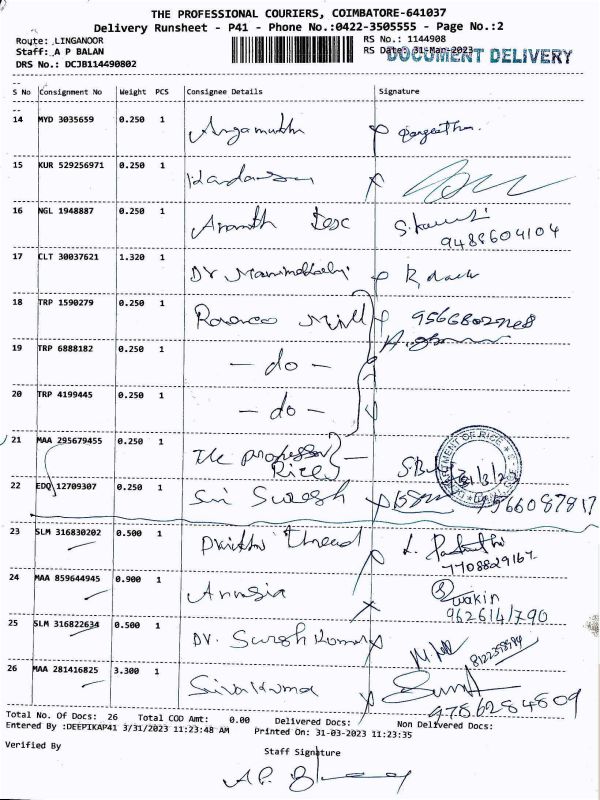 THE PROFESSIONAL COURIERS, COIMBATORE-641037
Delivery Runsheet - P41 - Phone No.:0422-3505555 - Page No.:2
Route: LINGANOOR
RS No.: 1144908
Staff: A P BALAN
RS Date: 31-Mar-2023
DOCUMENT DELIVERY
DRS No.: DCJB114490802
S No Consignment No Weight PCS Consignee Details Signature
14 MYD 3035659 0.250 1 Angamuthu
15 KUR 529256971 0.250 1
16 NGL 1948887 0.250 1 Ananth Esc
9488604104
17 CLT 30037621 1.320 1 Dr Manimekalai
18 TRP 1590279 0.250 1 Mill
19 TRP 6888182 0.250 1 - do -
20 TRP 4199445 0.250 1 - do -
21 MAA 295679455 0.250 1 The professor
Rice
DEPARTMENT OF RICE
22 EDQ 12709307 0.250 1 Sri Suresh 9566087817
23 SLM 316830202 0.500 1 Thread
7708829167
24 MAA 859644945 0.900 1 Anusia
962614/790
25 SLM 316822634 0.500 1 Dr. Suresh Kumar
26 MAA 281416825 3.300 1 Sivakuma
9786284809
Total No. Of Docs: 26 Total COD Amt: 0.00 Delivered Docs: Non Delivered Docs:
Entered By :DEEPIKAP41 3/31/2023 11:23:48 AM Printed On: 31-03-2023 11:23:35
Verified By
Staff Signature